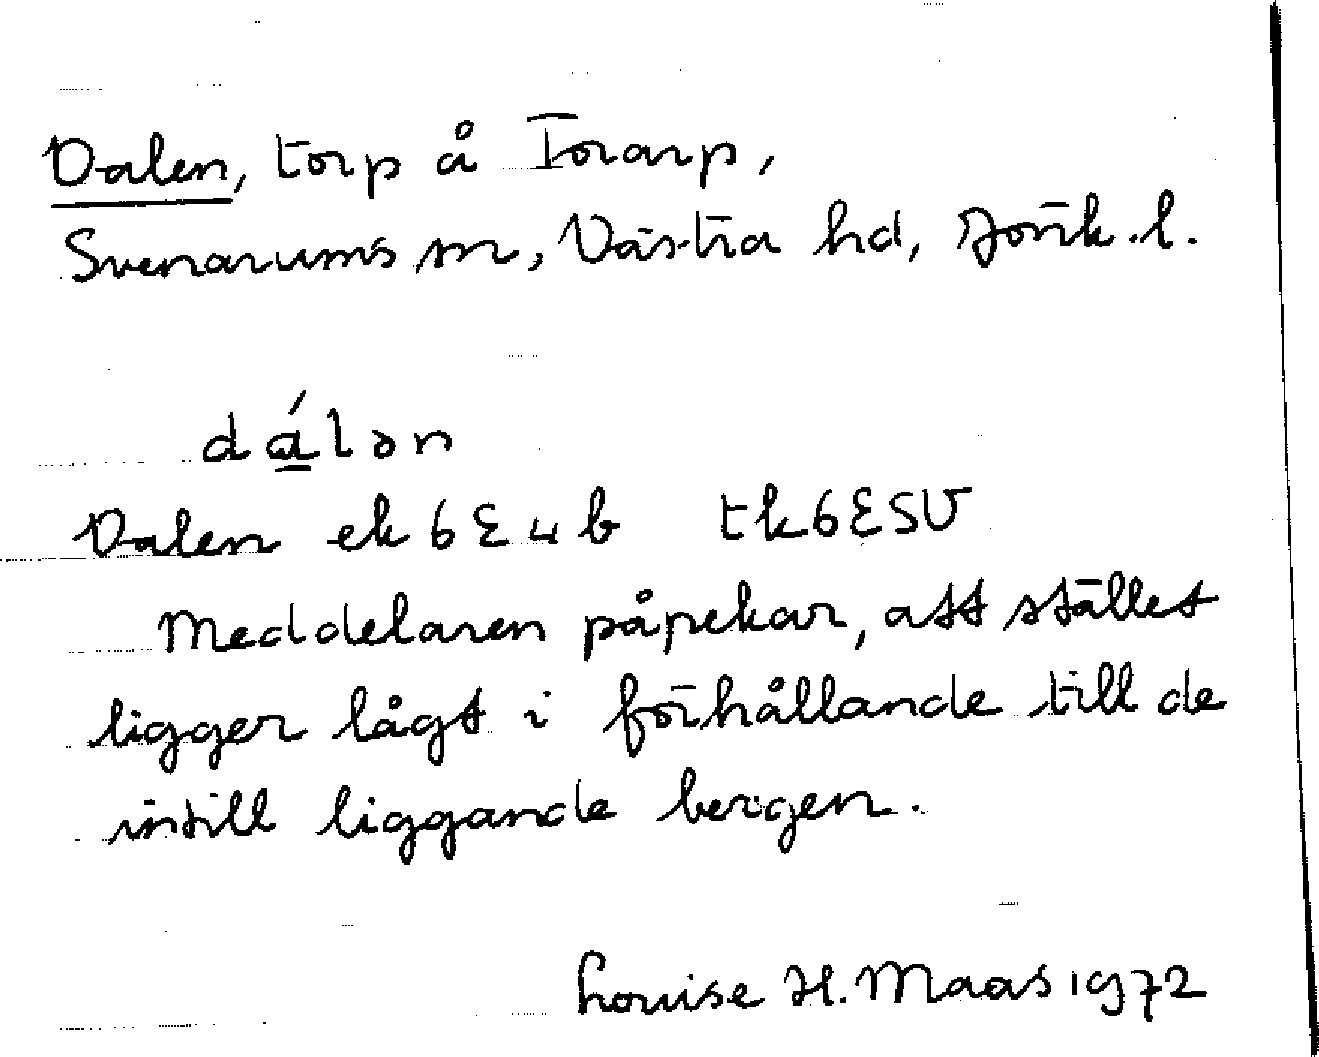 Dalen, torp å Torarp,
Svenarums sn, Västra hd, Jönk. l.
dá̲lən
Dalen ek 6 E 4 b tk 6 E SV
Meddelaren påpekar, att stället
ligger lågt i förhållande till de
intill liggande bergen.
Louise H. Maas 1972